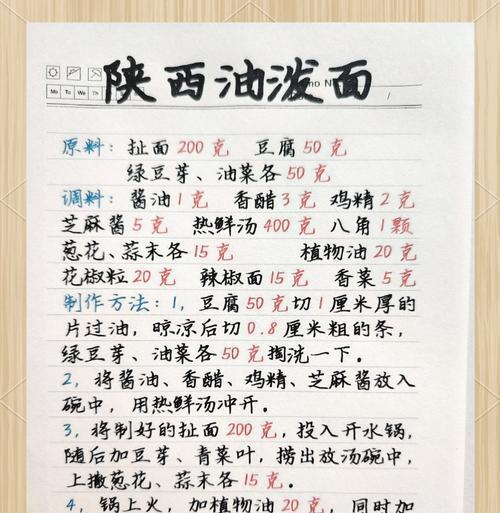 陕西油泼面
Mo Tu We Th
原料：扯面200克 豆腐50克
绿豆芽、油菜各50克
调料：酱油1克 香醋3克 鸡精2克
芝麻酱5克 热鲜汤400克 八角1颗
葱花、蒜末各15克 植物油20克
花椒粒20克 辣椒面15克 香菜5克
制作方法：1，豆腐50克切1厘米厚的
片过油，晾凉后切0.8厘米粗的条，
绿豆芽、油菜各50克掏洗一下。
2，将酱油、香醋、鸡精、芝麻酱放入
碗中，用热鲜汤冲开。
3，将制好的扯面200克，投入开水锅，
随后加豆芽、青菜叶，捞出放汤碗中，
上撒葱花、蒜末各15克。
4，锅上火，加植物油20克，同时加